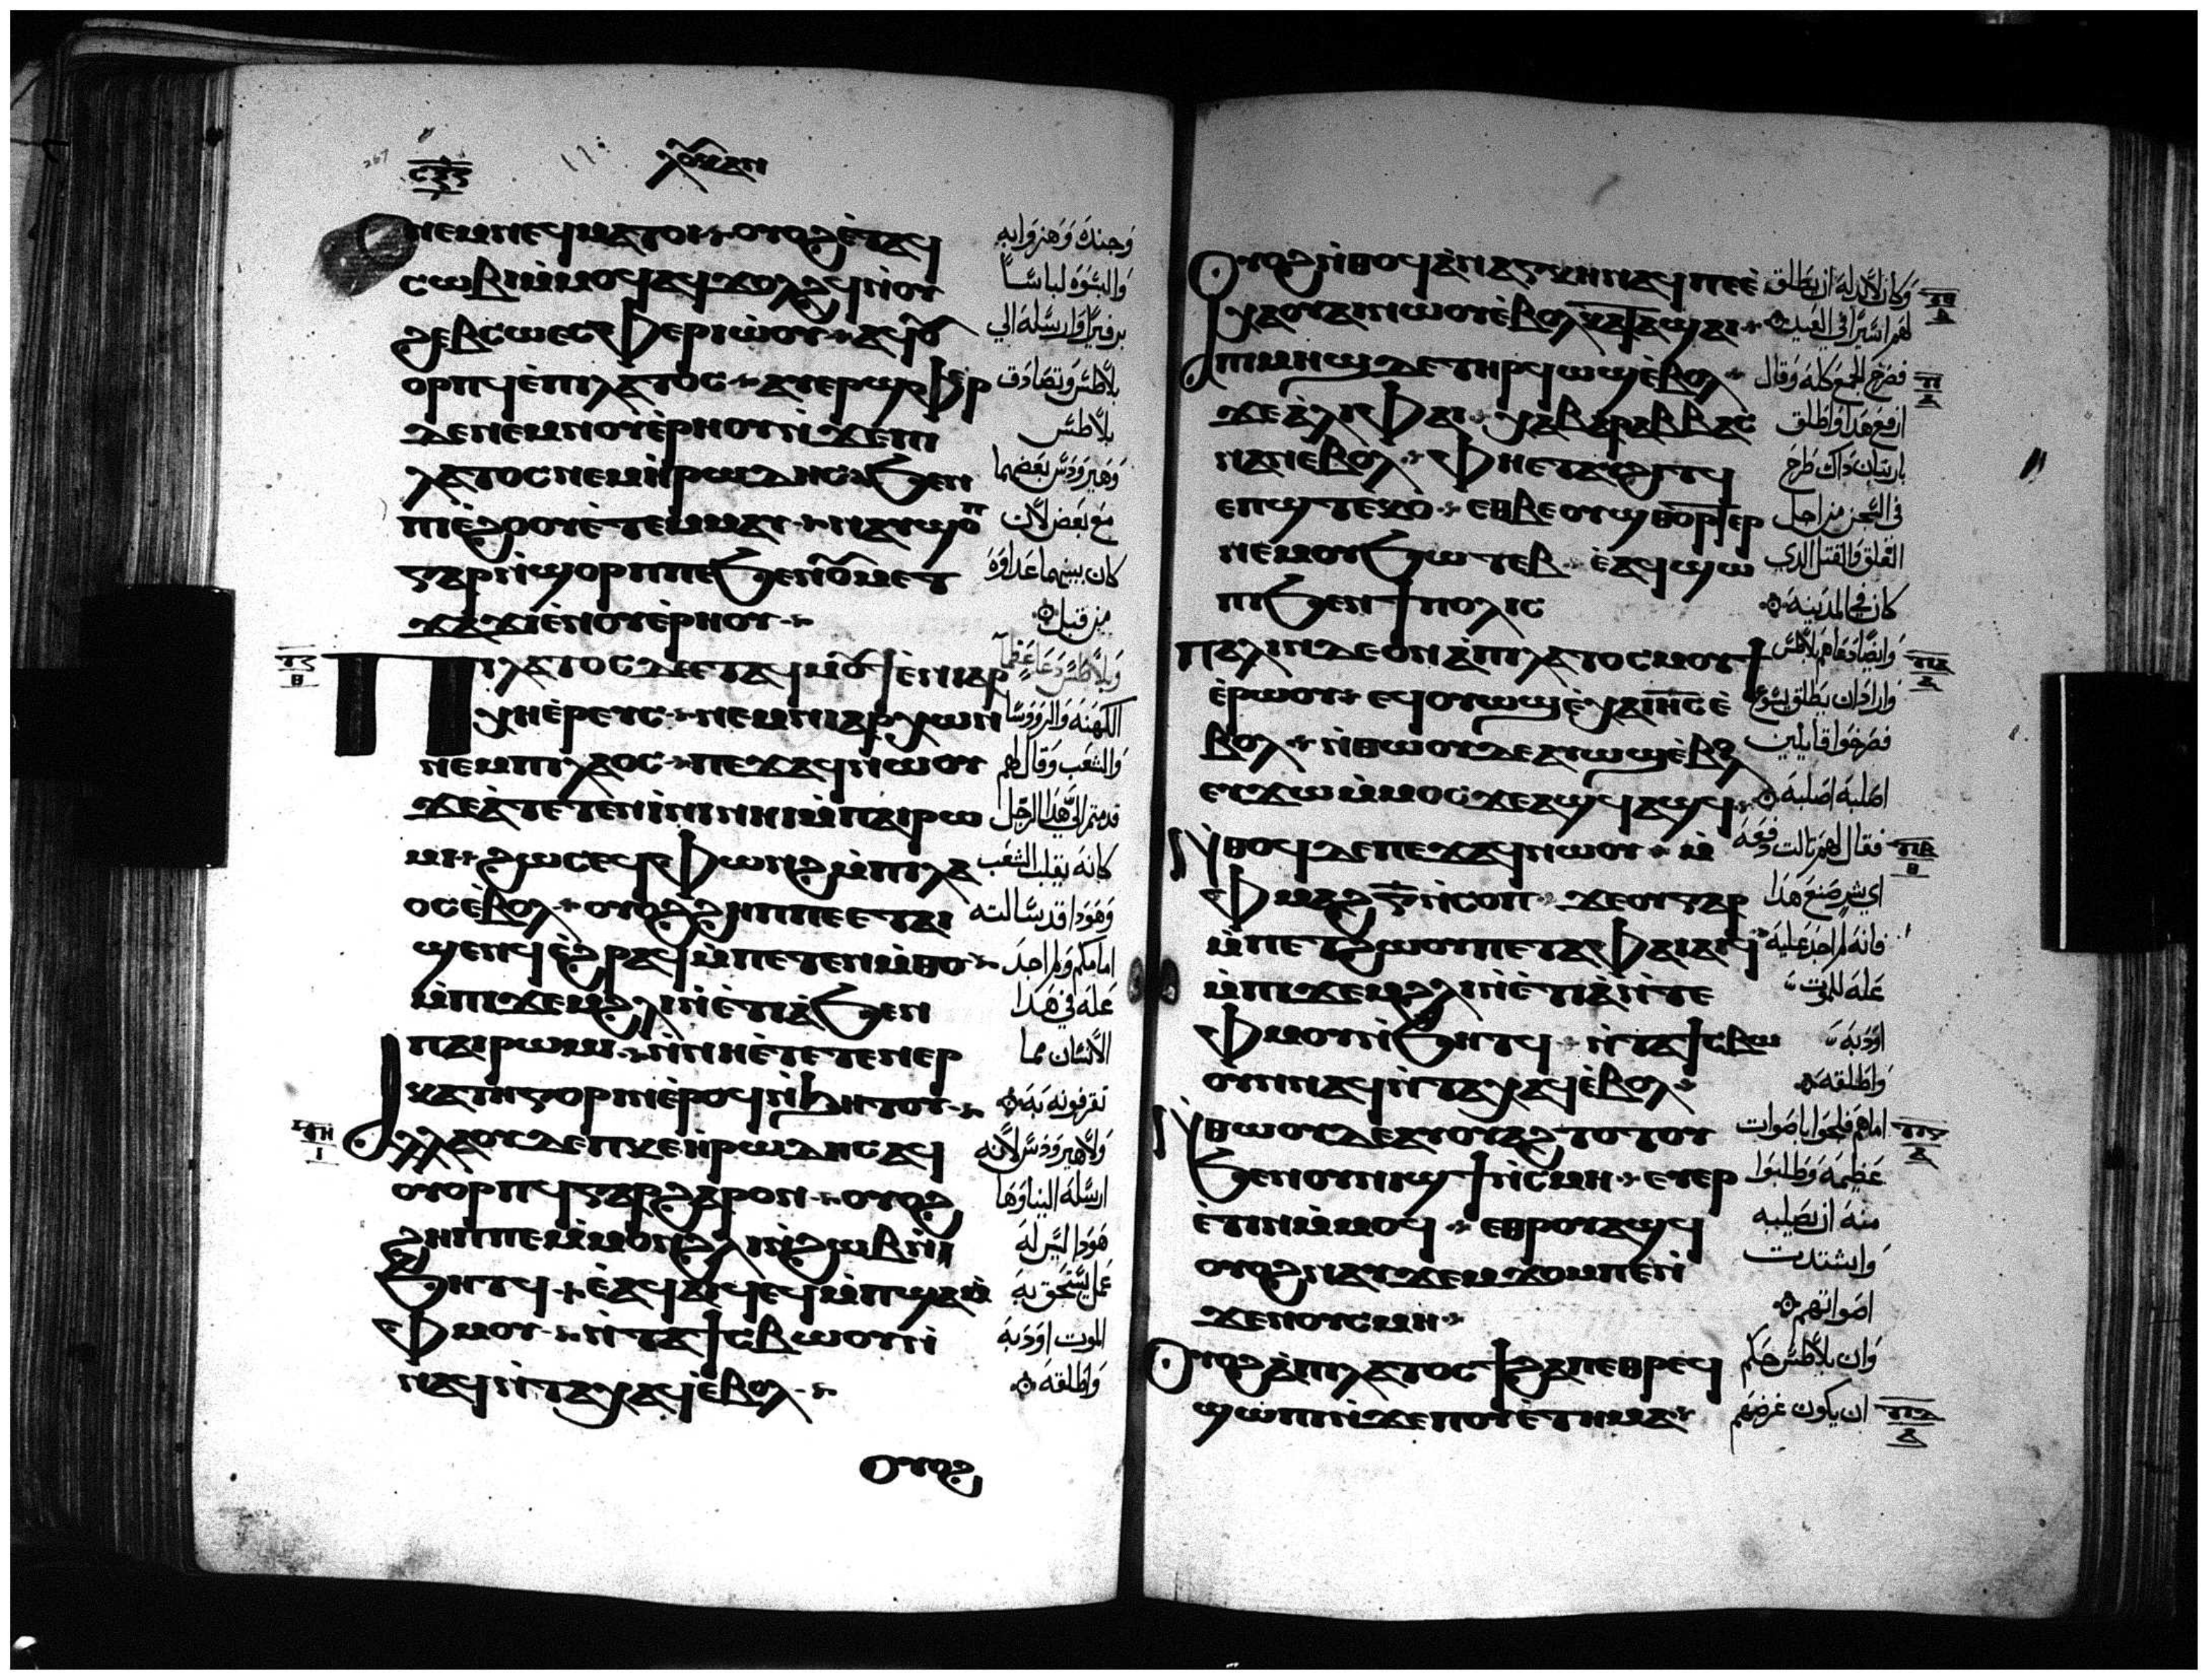 ⲥⲝⲍ
ⲗⲟⲩⲕⲁⲛ
ⲛⲉⲙⲛⲉϥⲙⲁⲧⲟⲓ ⲟⲩⲟϩⲉ̀ⲧⲁϥ
ⲥⲱⲃⲓⲙ̀ⲙⲟϥⲁϥϫⲟⲗϩϥⲛ̀ⲟⲩ
ϩⲉⲃⲥⲱⲉⲥⲫⲉⲣⲓⲱ̀ⲟⲩ ⲁϥⲟⲩ
ⲟⲣⲡϥⲉ̀ⲡⲓⲗⲁⲧⲟⲥ ⲁⲩⲉⲣϣⲫⲏⲣ
ⲇⲉⲛⲉⲙⲛⲟⲩⲉ̀ⲣⲏⲟⲩⲛ̀ϫⲉⲡⲓ
ⲗⲁⲧⲟⲥⲛⲉⲙⲏ̀ⲣⲱⲇⲏⲥ ϧⲉⲛ
ⲡⲓⲉ̀ϩⲟⲟⲩⲉ̀ⲧⲉⲙⲙⲁⲩ ⲛⲁⲩϣⲟⲡ
ⲅⲁⲣⲛ̀ϣⲟⲣⲡⲡⲉϧⲉⲛⲟⲩⲙⲉⲧ
ϫⲁϫⲓⲉ̀ⲛⲟⲩⲉ̀ⲣⲏⲟⲩ
ⲡⲓⲗⲁⲧⲟⲥⲇⲉⲉⲧⲁϥⲙⲟⲩϯⲉ̀ⲛⲓⲁⲣ
ⲭⲏⲉ̀ⲣⲉⲩⲥ ⲛⲉⲙⲛⲓⲁⲣⲭⲱⲛ
ⲛⲉⲙⲡⲓⲗⲁⲟⲥ ⲡⲉϫⲁϥⲛⲱⲟⲩ
ϫⲉⲁ̀ⲧⲉⲧⲉⲛⲓ̀ⲛⲓⲛⲏⲓⲙ̀ⲡⲁⲓⲣⲱ
ⲙⲓ ϩⲱⲥⲉϥⲫⲱⲛϩⲙ̀ⲡⲓⲗⲁ
ⲟⲥⲉ̀ⲃⲟⲗ ⲟⲩⲟϩϩⲏⲡⲡⲉⲉⲧⲁⲓ
ϣⲉⲛϥⲉ̀ϩⲣⲁϥⲙ̀ⲡⲉⲧⲉⲛⲙ̀ⲑⲟ
ⲙ̀ⲡⲓϫⲉⲙϩⲗⲓⲛ̀ⲉ̀ⲧⲓⲁ̀ϧⲉⲛ
ⲡⲁⲓⲣⲱⲙⲓ ⲛ̀ⲛⲏⲉ̀ⲧⲉⲧⲉⲛⲉⲣ
ⲕⲁⲧⲏⲅⲟⲣⲓⲛⲉ̀ⲣⲟϥⲛ̀ϧⲏⲧⲟⲩ
ⲁⲗⲗⲁⲟⲩⲇⲉⲡⲕⲉⲏ̀ⲣⲱⲇⲏⲥⲁϥ
ⲟⲩⲟⲣⲡϥⲅⲁⲣϩⲁⲣⲟⲛ ⲟⲩⲟϩ
ϩⲏⲡⲡⲉⲙ̀ⲙⲟⲛϩⲗⲓⲛ̀ϩⲱⲃⲛ̀
ϧⲏⲧϥ ⲉ̀ⲁϥⲁⲓϥⲉϥⲙ̀ⲡϣⲁⲙ̀
ⲫⲙⲟⲩ ⲛ̀ⲧⲁϯⲥⲃⲱⲟⲩⲛ̀
ⲛⲁϥⲛ̀ⲧⲁⲭⲁϥⲉ̀ⲃⲟⲗ
ⲟⲩⲟϩ
وجنده وهزوا به
والبسوه لباسًا
برفيرًا وارسله الي
بلاطس وتصادق
بلاطس
وهيرودس بعضهما
مع بعض لان
كان بينهما عداوة
من قبل
وبلاطس دعا عظما
الكهنة والروسا
والشعب وقال لهم
قدمتم الي هذا الرجل
كانه يقلب الشعب
وهودا قد سالته
امامكم ولم اجد
علة في هذا
الانسان مما
تقرفونه به
ولا هيرودس لانه
ارسله الينا وها
هودا ليس له
عمل يستحق به
الموت اودبه
واطلقه
ⲟⲩⲟϩⲛ̀ⲑⲟϥⲁ̀ⲛⲁⲅⲕⲏⲛⲁϥⲡⲉⲉ̀
ⲭⲁⲟⲩⲁⲓⲛⲱⲟⲩⲉ̀ⲃⲟⲗⲕⲁⲧⲁϣⲁⲓ
ⲡⲓⲙⲏϣⲇⲉⲧⲏⲣϥⲱϣⲉ̀ⲃⲟⲗ
ϫⲉⲁ̀ⲗⲓⲫⲁⲓ ⲭⲁⲃⲁⲣⲁⲃⲃⲁⲥ
ⲛⲁⲛⲉⲃⲟⲗ ⲫⲏⲉⲧⲁⲩϩⲓⲧϥ
ⲉⲡϣⲧⲉⲕⲟ ⲉⲑⲃⲉⲟⲩϣⲑⲟⲣⲧⲉⲣ
ⲛⲉⲙⲟⲩϧⲱⲧⲉⲃ ⲉ̀ⲁϥϣⲱ
ⲡⲓϧⲉⲛϯⲡⲟⲗⲓⲥ
ⲡⲁⲗⲓⲛⲇⲉⲟⲛⲁ̀ⲡⲓⲗⲁⲧⲟⲥⲙⲟⲩϯ
ⲉ̀ⲣⲱⲟⲩ ⲉϥⲟⲩⲱϣⲉ̀ⲭⲁⲓⲏⲥⲉ̀
ⲃⲟⲗ ⲛ̀ⲑⲱⲟⲩⲇⲉⲁⲩⲱϣⲉ̀ⲃⲟⲗ
ⲉⲩϫⲱⲙ̀ⲙⲟⲥϫⲉⲁϣϥⲁϣϥ
ⲛ̀ⲑⲟϥⲇⲉⲡⲉϫⲁϥⲛⲱⲟⲩ ⲙ̀
ⲫⲙⲁϩⲅ̅ⲛ̀ⲥⲟⲡ ϫⲉⲟⲩⲅⲁⲣ
ⲙ̀ⲡⲉⲧϩⲱⲟⲩⲡⲉⲧⲁⲫⲁⲓⲁⲓϥ
ⲙ̀ⲡⲓϫⲉⲙϩⲗⲓⲛ̀ⲉ̀ⲧⲓⲁ̀ⲛ̀ⲧⲉ
ⲫⲙⲟⲩⲛ̀ϧⲏⲧϥ ⲛ̀ⲧⲁϯⲥⲃⲱ
ⲟⲩⲛⲛⲁϥⲛ̀ⲧⲁⲭⲁϥⲉ̀ⲃⲟⲗ
ⲛ̀ⲑⲱⲟⲩⲇⲉⲁⲩⲟⲩⲁϩⲧⲟⲧⲟⲩ
ϧⲉⲛⲟⲩⲛⲓϣϯⲛ̀ⲥⲙⲏ ⲉⲩⲉⲣ
ⲉ̀ⲧⲓⲛⲙ̀ⲙⲟϥ ⲉⲑⲣⲟⲩⲁϣϥ
ⲟⲩⲟϩⲛⲁⲩϫⲉⲙϫⲟⲙⲡⲉⲛ̀
ϫⲉⲛⲟⲩⲥⲙⲏ
ⲟⲩⲟϩⲁ̀ⲡⲓⲗⲁⲧⲟⲥϯϩⲁⲡⲉⲑⲣⲉϥ
ϣⲱⲡⲓⲛ̀ϫⲉⲡⲟⲩⲉ̀ⲧⲏⲙⲁ
وكان لابد له ان يطلق
لهم اسيرًا في العيد
فصرخ الجمع كله وقال
ارفع هذا واطلق
بارنبان داك طرح
في السجن من اجل
القلق والقتل الدي
كان في المدينة
وايضًا دعاهم بلاطس
واراد ان يطلق يسوع
فصرخوا قايلين
اصلبه اصلبه
فقال لهم تالت دفعة
اي شر صنع هذا
فانه لم اجد عليه
علة للموت
اودبه
واطلقه
اما هم فلجوا باصوات
عظيمة وطلبوا
منه ان يصلبه
واشتدت
اصواتهم
وان بلاطس حكم
ان يكون غرضهم